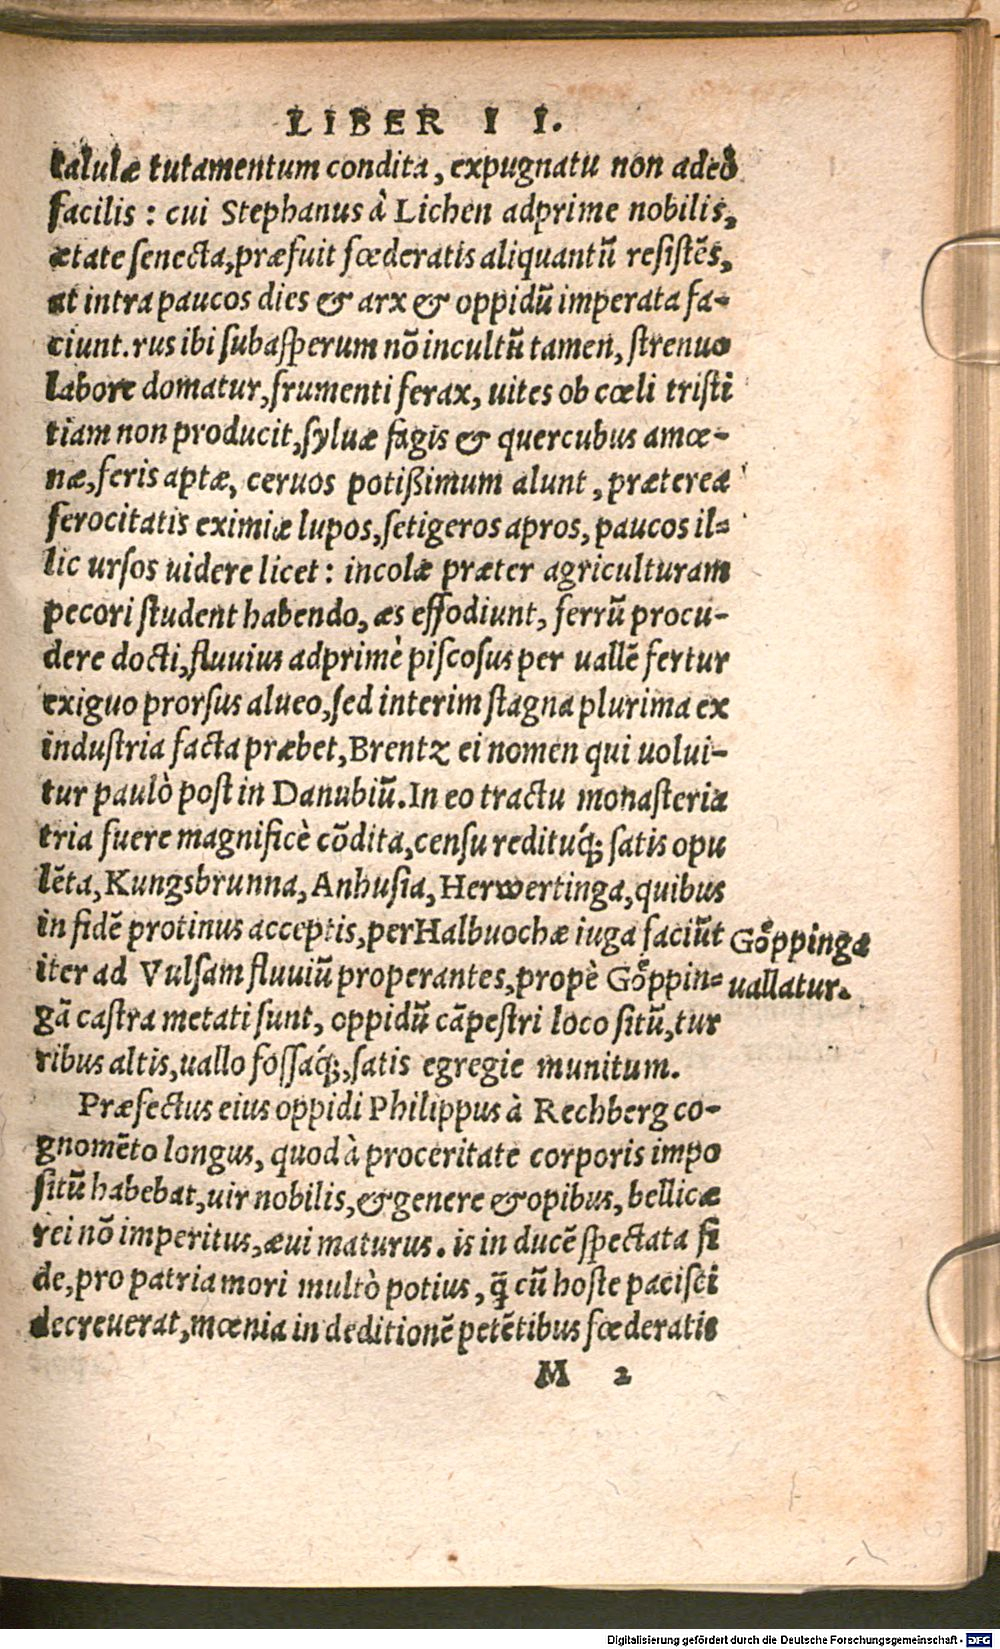 LIBER II.
calulæ tutamentum condita, expugnatu non adeò
facilis: cui Stephanus à Lichen adprime nobilis,
ætate senecta, præfuit fœderatis aliquantũ resistẽs,
at intra paucos dies & arx & oppidũ imperata fa-
ciunt. rus ibi subasperum nõ incultũ tamen, strenuo
labore domatur, frumenti ferax, uites ob cœli tristi
tiam non producit, syluæ fagis & quercubus amœ-
næ, feris aptæ, ceruos potißimum alunt, prætereæ
ferocitatis eximiæ lupos, setigeros apros, paucos il-
lic ursos uidere licet: incolæ præter agriculturam
pecori student habendo, æs effodiunt, ferrũ procu-
dere docti, fluuius adprimè piscosus per uallẽ fertur
exiguo prorsus alueo, sed interim stagna plurima ex
industria facta præbet, Brentz ei nomen qui uolui-
tur paulò post in Danubiũ. In eo tractu monasteria
tria fuere magnificè cõdita, censu redituq́; satis opu
lẽta, Kungsbrunna, Anhusia, Herwertinga, quibus
in fidẽ protinus acceptis, per Halbuochæ iuga faciũt
iter ad Vulsam fluuiũ properantes, propè Gôͤpping-
gã castra metati sunt, oppidũ cãpestri loco sitũ, tur
ribus altis, uallo fossaq́;, satis egregie munitum.
Gôͤppinga
uallatur.
Præfectus eius oppidi Philippus à Rechberg co-
gnomẽto longus, quod à proceritate corporis impo
sitũ habebat, uir nobilis, & genere & opibus, bellicæ
rei nõ imperitus, æui maturus. is in ducẽ spectata fi
de, pro patria mori multò potius, q̃ cũ hoste pacisci
decreuerat, mœnia in deditionẽ petẽtibus fœderatis
M 2
Digitalisierung gefördert durch die Deutsche Forschungsgemeinschaft - DFG